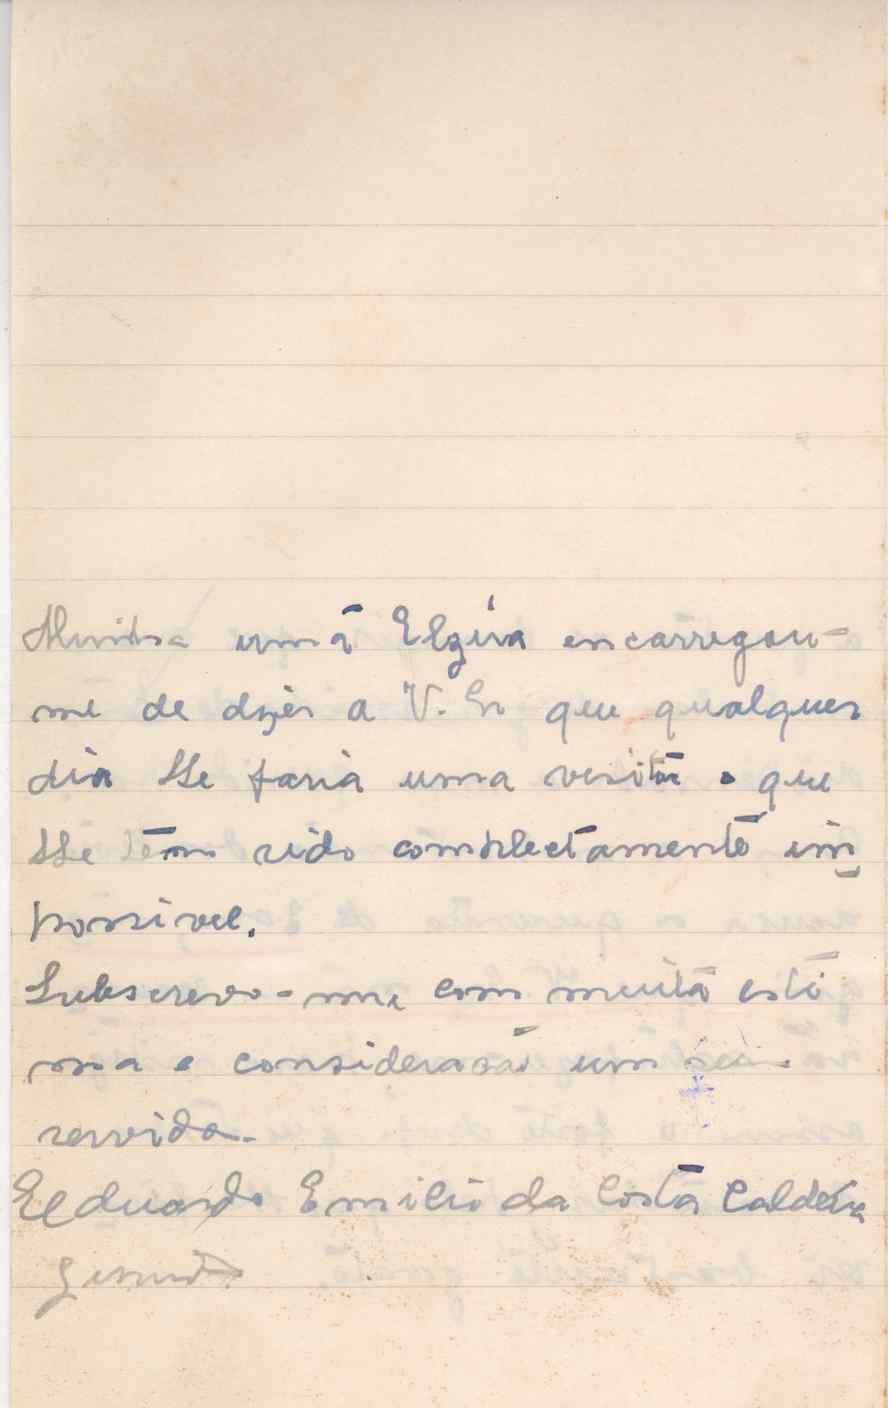 Minha irmã Elzira encarregou-
me de dizer a V. Ex que qualquer
dia lhe faria uma visita o que
lhe têm sido completamente im
possivel.
Subscrevo-me com muita esti
ma e consideração um seu
servido.
Eduardo Emilio da Costa Caldeira